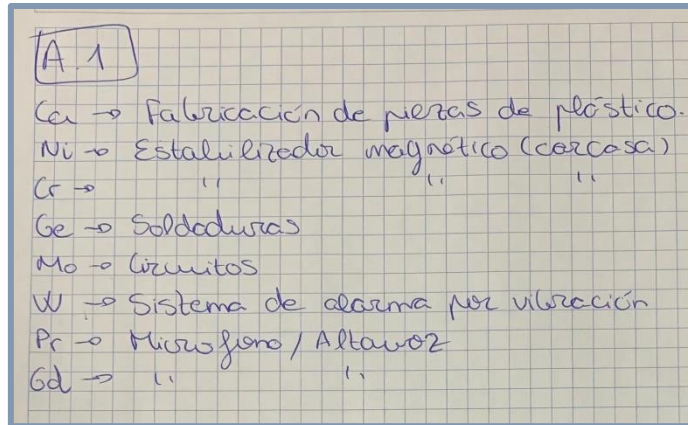 A.1
Ca → Fabricación de piezas de plástico.
Ni → Estabilizador magnético (carcasa)
Cr → " " "
Ge → Soldaduras
Mo → Circuitos
W → Sistema de alarma por vibración
Pr → Microfono / Altavoz
Gd → " "